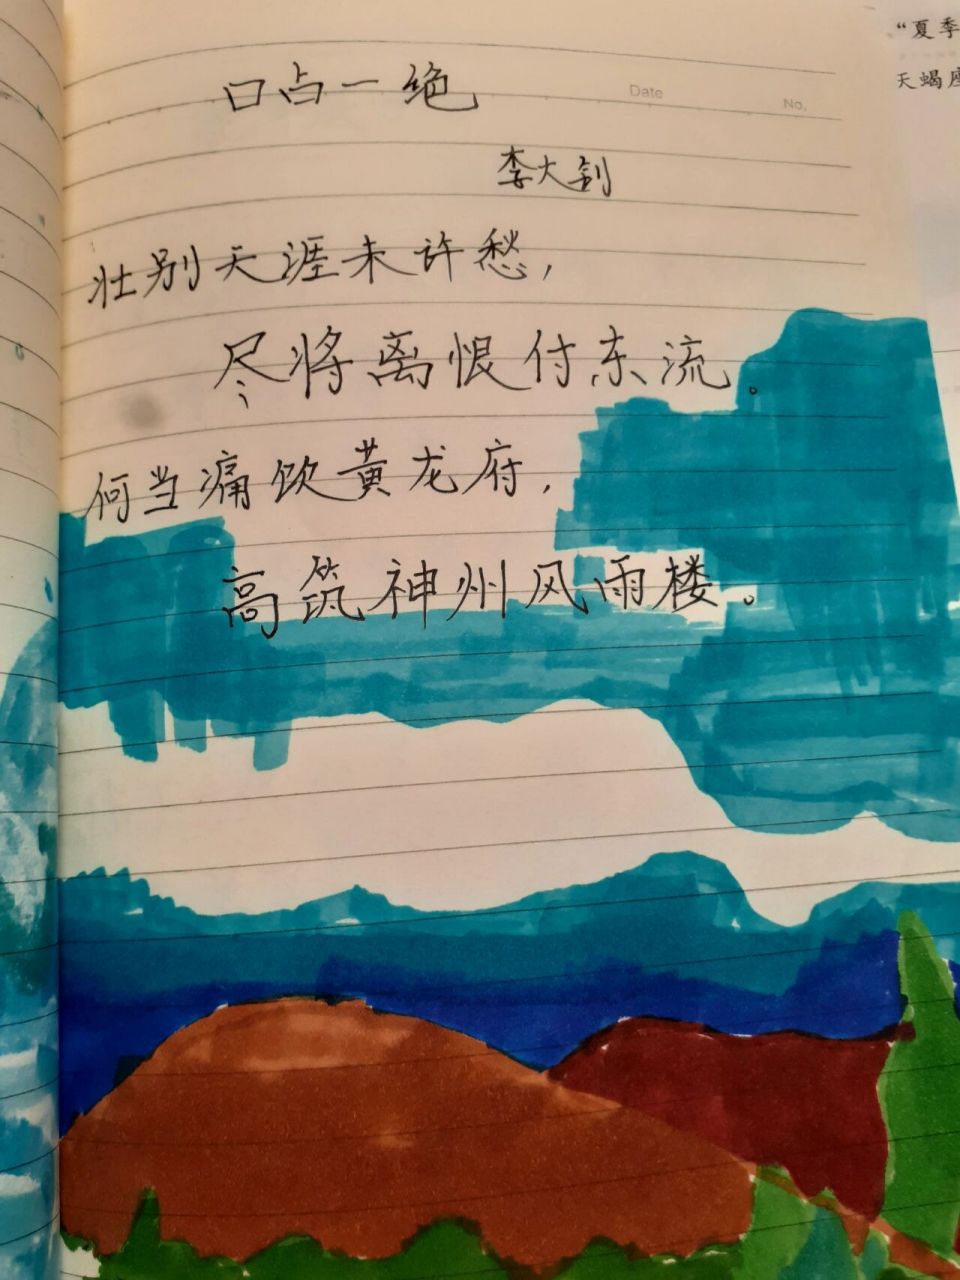 口占一绝
Date
No.
李大钊
壮别天涯未许愁,
尽将离恨付东流。
何当痛饮黄龙府,
高筑神州风雨楼。
“夏季
天蝎座